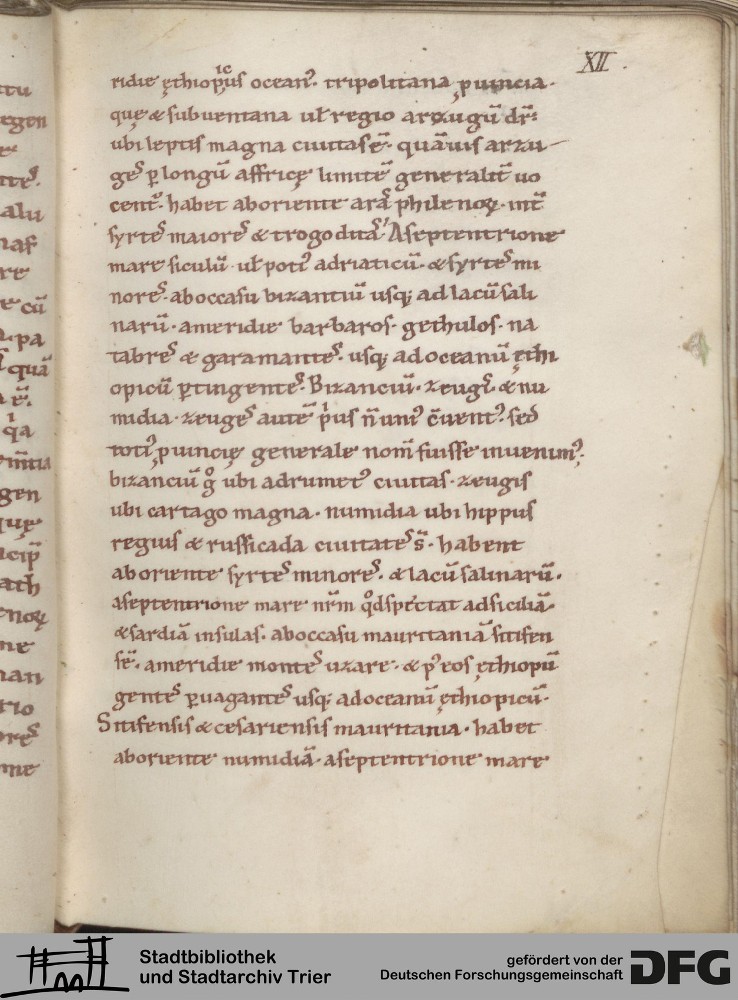 XII.
ridie ęthiopicus oceanꝰ. tripolitana ꝓuincia.
que & subuentana uł regio arzugū dr̄:
ubi leptis magna ciuitas ē. quāuis arzu
ges ꝑ longū affricę limitē generalit̄ uo
cent᷑. habet aboriente arā philenoꝝ. int̄
syrtes maiores & trogoditā. Aseptentrione
mare siculū. uł potiꝰ adriaticū. & syrtes mi
nores. aboccasu bizantiū usq; ad lacū sali
narū. ameridie barbaros. gethulos. na
tabres & garamantes. usq; adoceanū ęthi
opicū ꝑtingentes. Bizanciū. zeugis & nu
midia. zeuges autē pͥus n̄ uniꝰ c̄uentꝰ. sed
totiꝰ ꝓuincię generale nom̄ fuisse inuenimꝰ.
bizanciū gͦ ubi adrumetꝰ ciuitas. zeugis
ubi cartago magna. numidia ubi hippus
regius & rusficada ciuitates s̄. habent
aboriente syrtes minores. & lacū salinarū.
aseptentrione mare nr̄m qd̄ spectat adsiciliā
& sardiā insulas. aboccasu mauritaniā sitifen
sē. ameridie montes uzare. & pꝰ eos ęthiopū
gentes ꝑuagantes usq; adoceanū ęthiopicū.
Sitifensis & cesariensis mauritania. habet
aboriente numidiā. aseptentrione mare
Stadtbibliothek
und Stadtarchiv Trier
gefördert von der
Deutschen Forschungsgemeinschaft
DFG